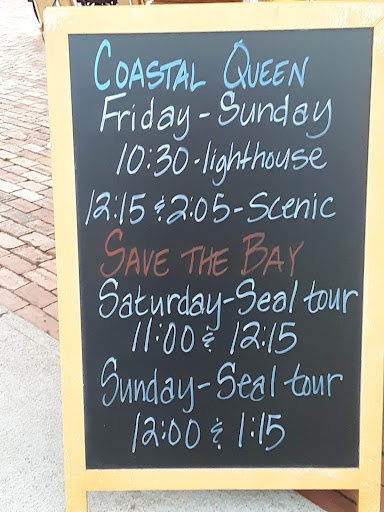 COASTAL QUEEN
Friday - Sunday
10:30 - lighthouse
12:15 & 2:05 - Scenic
SAVE THE BAY
Saturday - Seal tour
11:00 & 12:15
Sunday - Seal tour
12:00 & 1:15